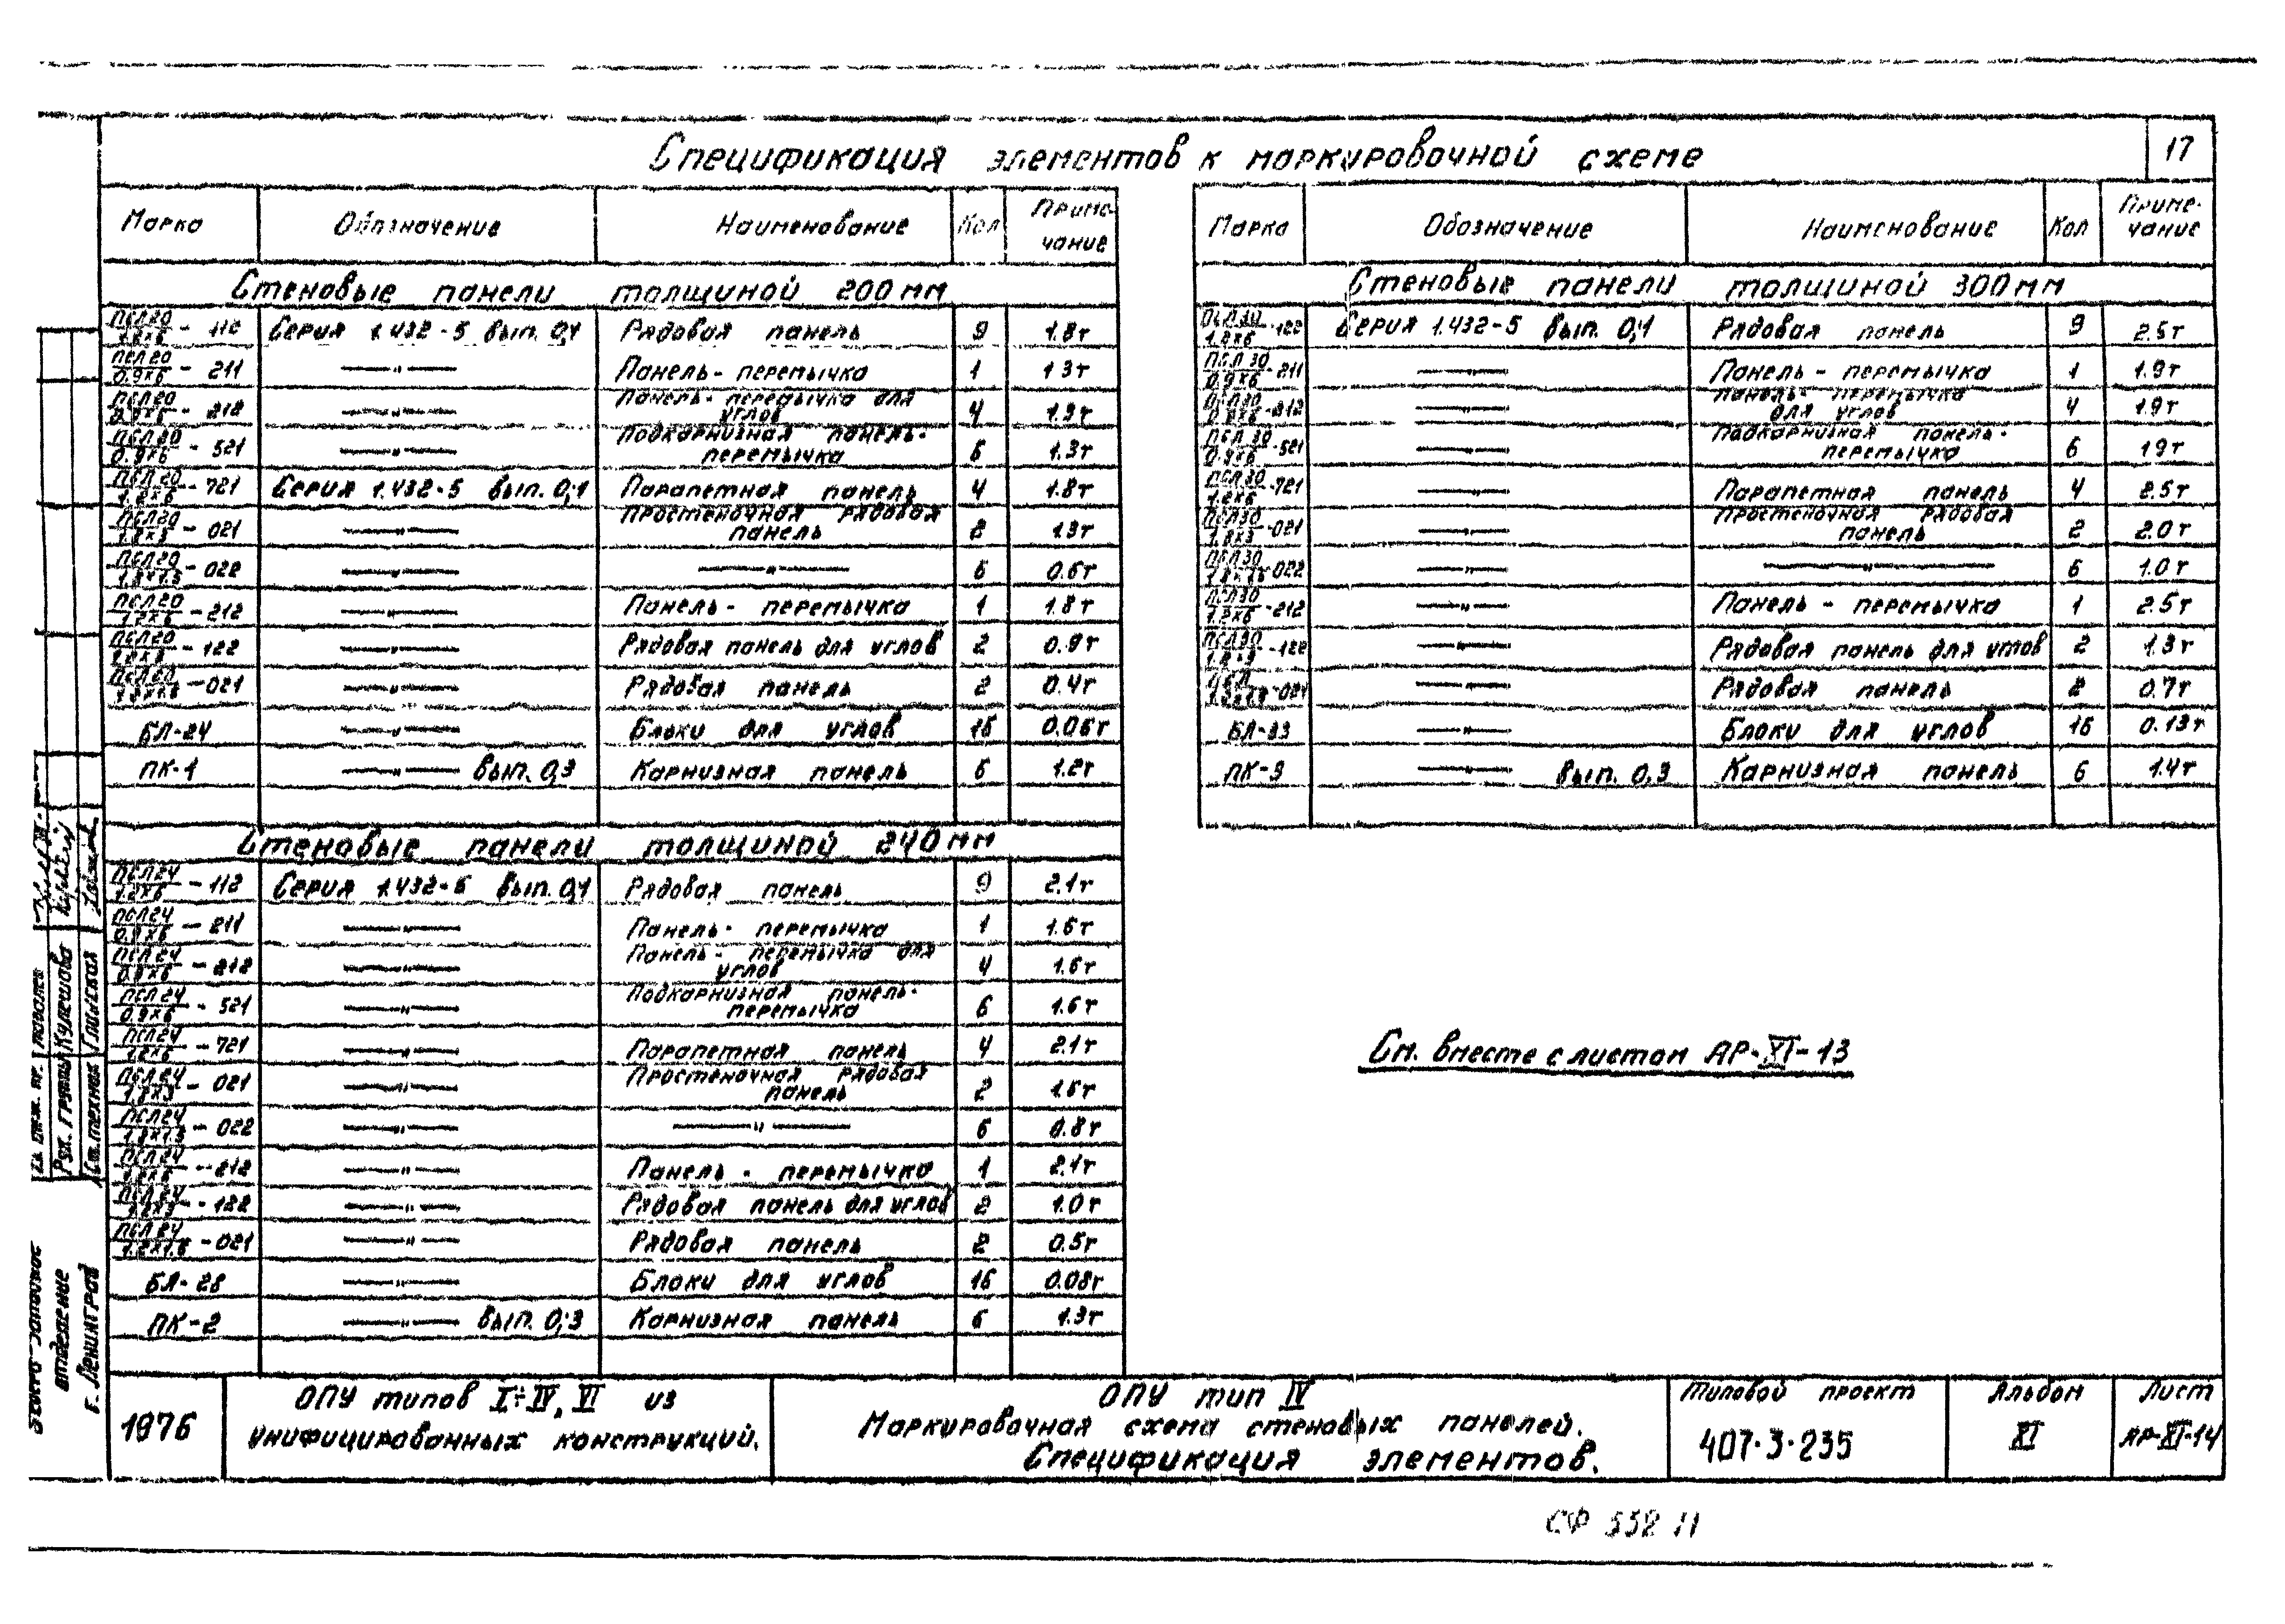 17
Спецификация элементов к маркировочной схеме
Марка Обозначение Наименование Кол Приме-чание
Стеновые панели толщиной 200 мм
ПСЛ20/1.2×6 - 112 Серия 1.432-5 вып. 0,1 Рядовая панель 9 1.8т
ПСЛ20/0.9×6 - 211 —"— Панель-перемычка 1 1.3т
ПСЛ20/0.9×6 - 212 —"— Панель-перемычка для углов 4 1.3т
ПСЛ20/0.9×6 - 521 —"— Подкарнизная панель-перемычка 6 1.3т
ПСЛ20/1.2×6 - 721 Серия 1.432-5 вып. 0,1 Парапетная панель 4 1.8т
ПСЛ20/1.8×3 - 021 —"— Простеночная рядовая панель 2 1.3т
ПСЛ20/1.8×1.5 - 022 —"— —"— 6 0.6т
ПСЛ20/1.2×6 - 212 —"— Панель-перемычка 1 1.8т
ПСЛ20/1.2×3 - 122 —"— Рядовая панель для углов 2 0.9т
ПСЛ20/1.2×1.5 - 021 —"— Рядовая панель 2 0.4т
БЛ-24 —"— Блоки для углов 16 0.06т
ПК-1 —"— вып. 0,3 Карнизная панель 6 1.2т
Стеновые панели толщиной 240 мм
ПСЛ24/1.2×6 - 112 Серия 1.432-5 вып. 0,1 Рядовая панель 9 2.1т
ПСЛ24/0.9×6 - 211 —"— Панель-перемычка 1 1.6т
ПСЛ24/0.9×6 - 212 —"— Панель-перемычка для углов 4 1.6т
ПСЛ24/0.9×6 - 521 —"— Подкарнизная панель-перемычка 6 1.6т
ПСЛ24/1.2×6 - 721 —"— Парапетная панель 4 2.1т
ПСЛ24/1.8×3 - 021 —"— Простеночная рядовая панель 2 1.6т
ПСЛ24/1.8×1.5 - 022 —"— —"— 6 0.8т
ПСЛ24/1.2×6 - 212 —"— Панель-перемычка 1 2.1т
ПСЛ24/1.2×3 - 122 —"— Рядовая панель для углов 2 1.0т
ПСЛ24/1.2×1.5 - 021 —"— Рядовая панель 2 0.5т
БЛ-28 —"— Блоки для углов 16 0.08т
ПК-2 —"— вып. 0;3 Карнизная панель 6 1.3т
Марка Обозначение Наименование Кол Приме-чание
Стеновые панели толщиной 300 мм
ПСЛ30/1.2×6 - 122 Серия 1.432-5 вып. 0,1 Рядовая панель 9 2.5т
ПСЛ30/0.9×6 - 211 —"— Панель-перемычка 1 1.9т
ПСЛ30/0.9×6 - 212 —"— Панель-перемычка для углов 4 1.9т
ПСЛ30/0.9×6 - 521 —"— Подкарнизная панель-перемычка 6 1.9т
ПСЛ30/1.2×6 - 721 —"— Парапетная панель 4 2.5т
ПСЛ30/1.8×3 - 021 —"— Простеночная рядовая панель 2 2.0т
ПСЛ30/1.8×1.5 - 022 —"— —"— 6 1.0т
ПСЛ30/1.2×6 - 212 —"— Панель-перемычка 1 2.5т
ПСЛ30/1.2×3 - 122 —"— Рядовая панель для углов 2 1.3т
- 021 —"— Рядовая панель 2 0.7т
БЛ-33 —"— Блоки для углов 16 0.13т
ПК-3 —"— вып. 0,3 Карнизная панель 6 1.4т
См. вместе с листом АР-XI-13
Рук. группы Кулешова
Ст.техник
отделение
г. Ленинград
1976
ОПУ типов I÷IV, VI из
унифицированных конструкций.
ОПУ тип IV
Маркировочная схема стеновых панелей.
Спецификация элементов.
Типовой проект
407-3-235
Альбом
XI
Лист
АР-XI-14
СФ 552 11